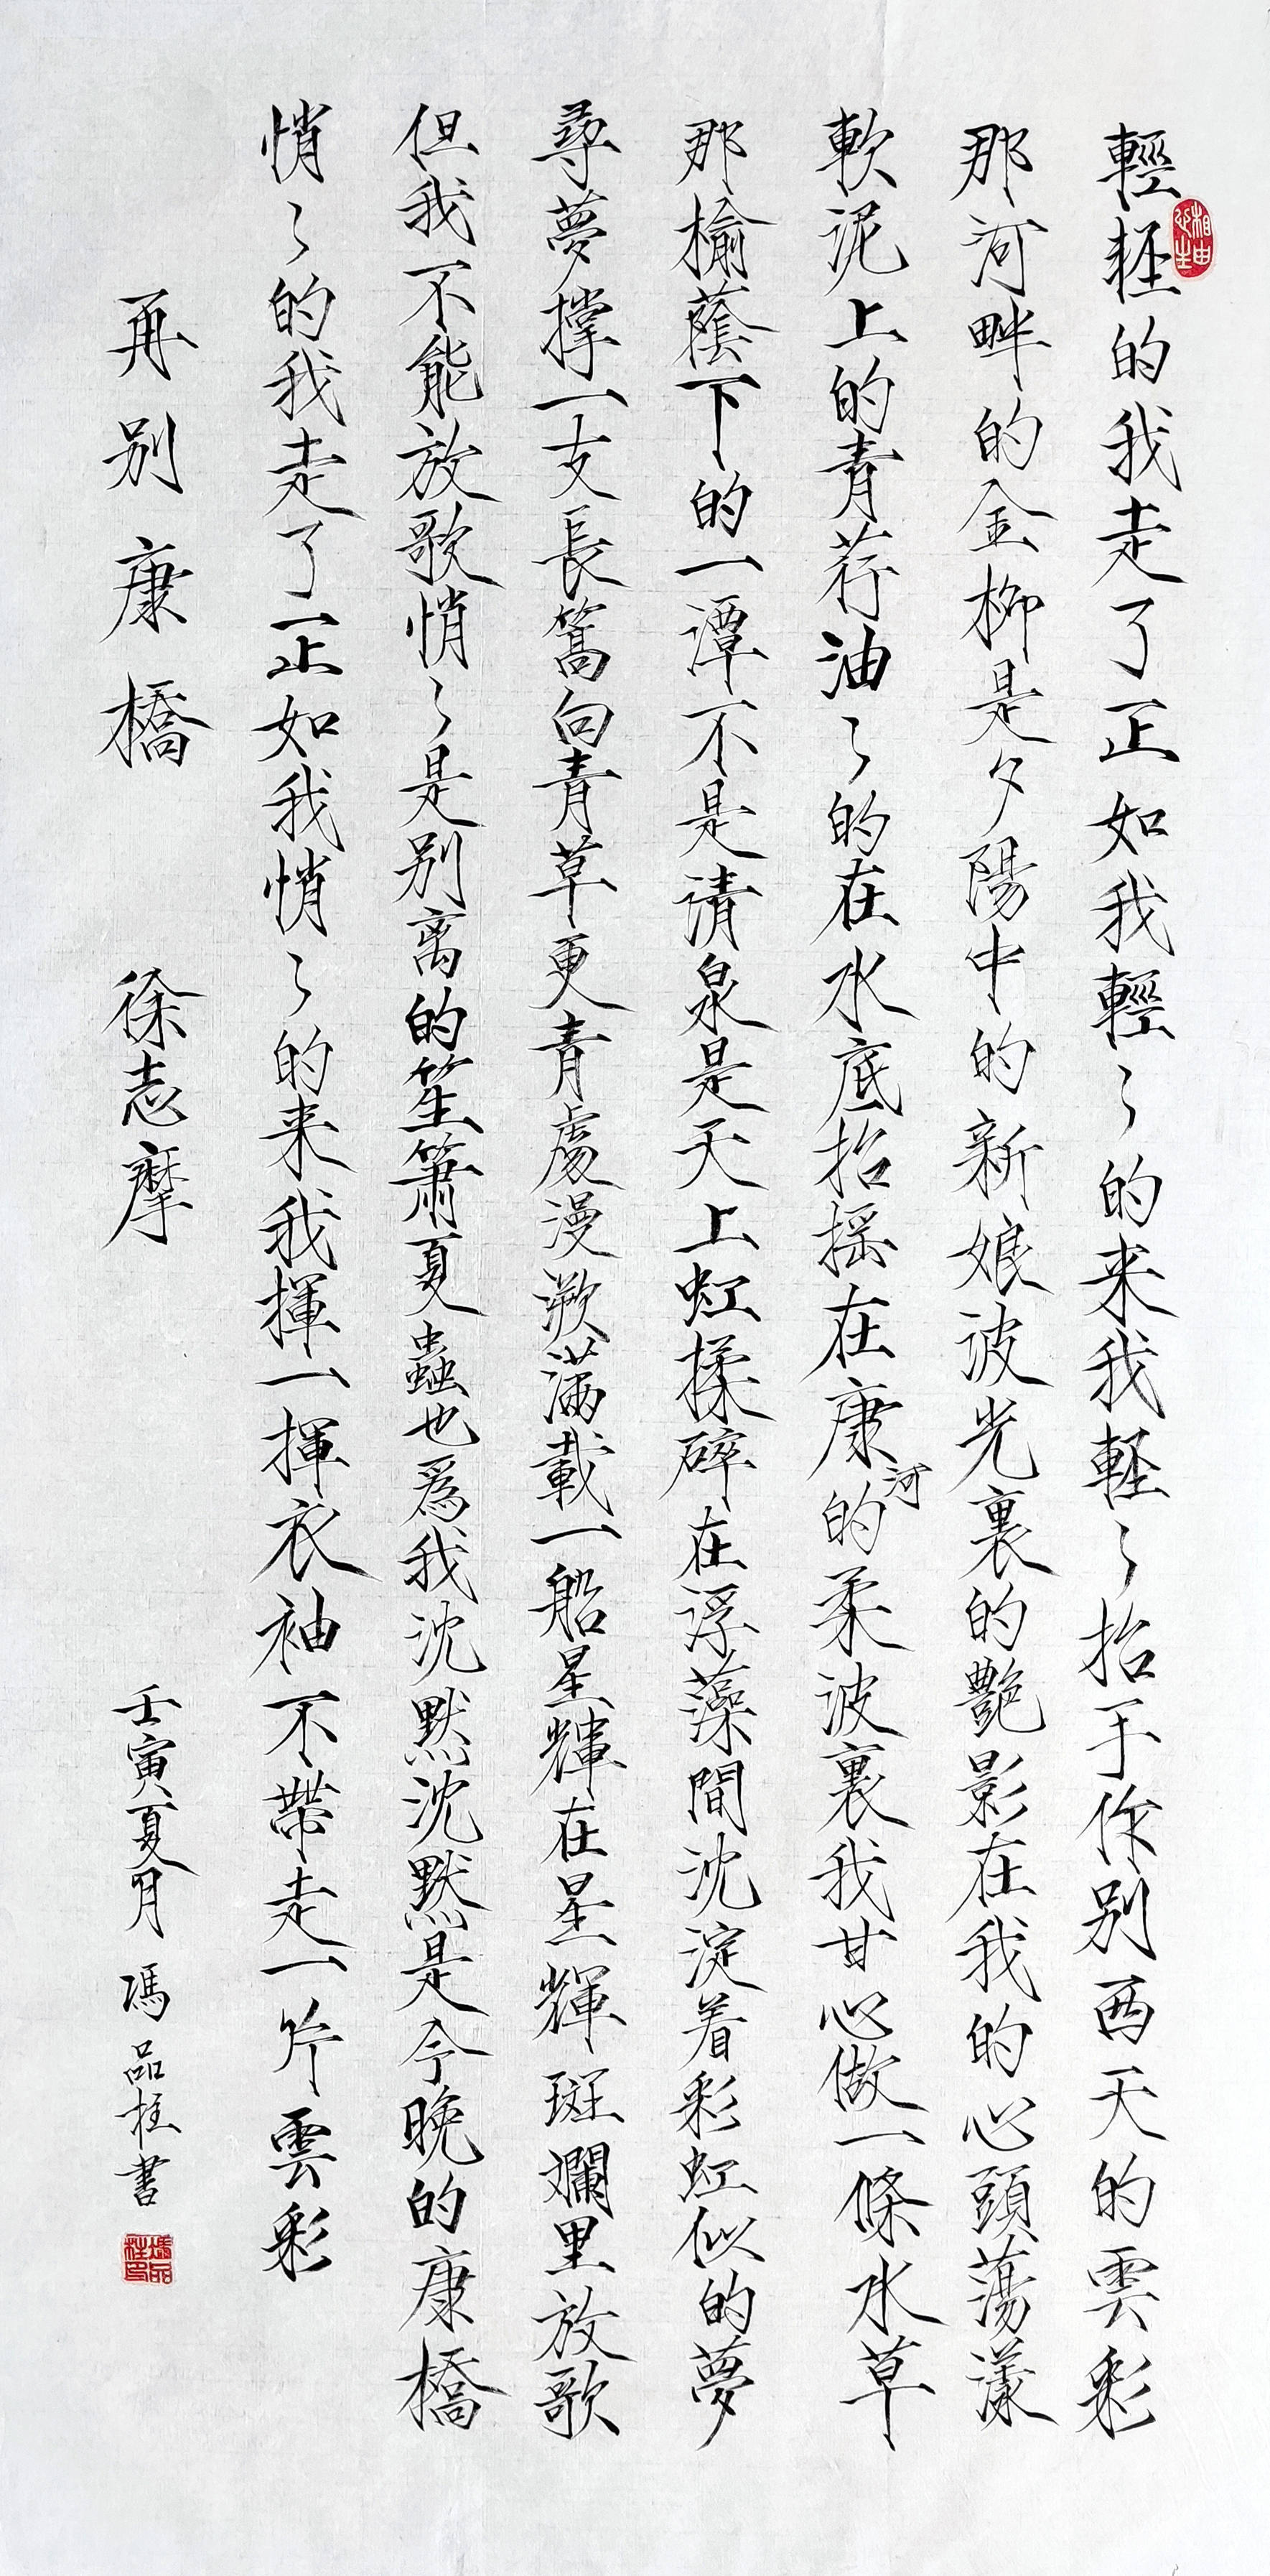 輕輕的我走了正如我輕々的来我軽々抬手作别西天的雲彩
那河畔的金柳是夕陽中的新娘波光裏的艷影在我的心頭蕩漾
軟泥上的青荇油々的在水底招摇在康河的柔波裏我甘心做一條水草
那榆蔭下的一潭不是清泉是天上虹揉碎在浮藻間沈淀着彩虹似的夢
尋夢撑一支長篙向青草更青處漫溯满載一船星輝在星輝斑斕里放歌
但我不能放歌悄々是别离的笙簫夏蟲也爲我沈默沈默是今晚的康橋
悄々的我走了正如我悄々的来我揮一揮衣袖不帶走一片雲彩
再别康橋 徐志摩 壬寅夏月 馮品柱書